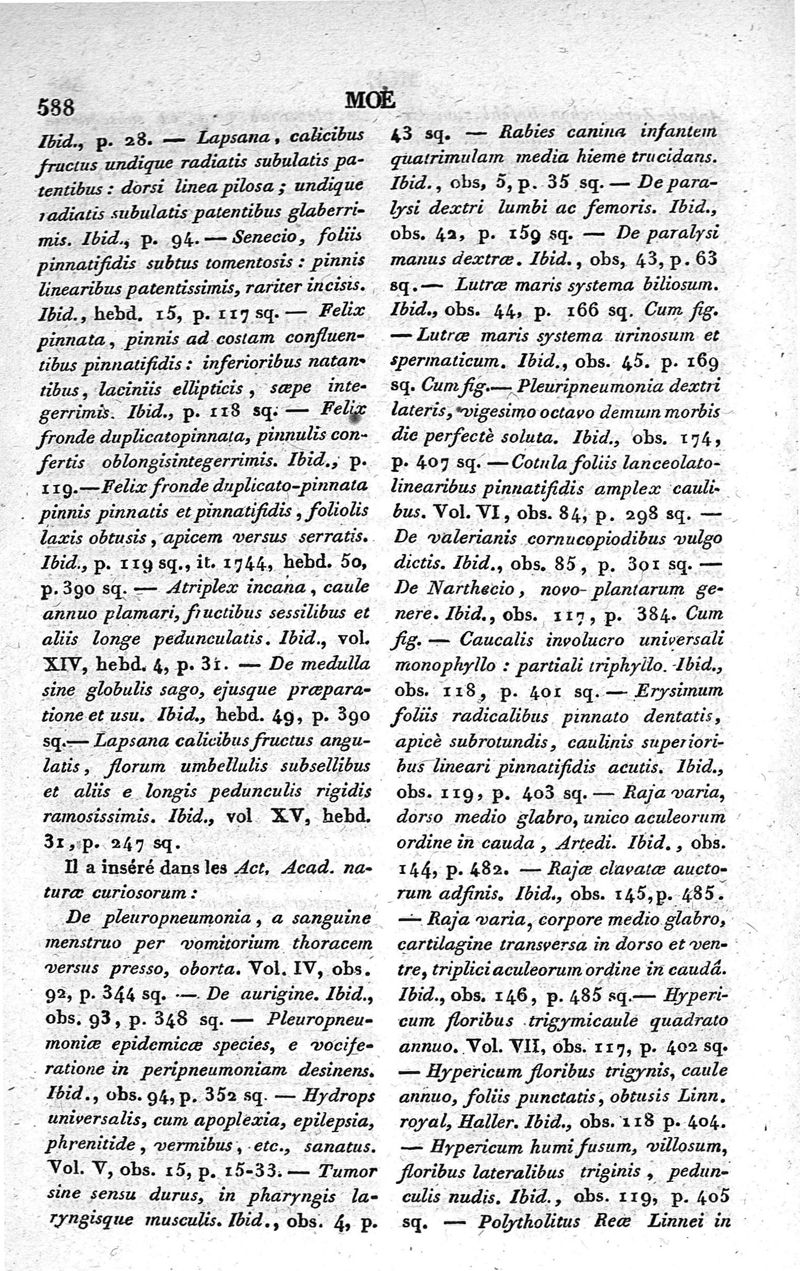 588
MOÈ
Ibid., p. 28. — Lapsana, calicibus
fructus undique radiatis subulatis pa-
tentibus : dorsi linea pilosa ; undique
radiatis subulatis patentibus glaberri-
mis. Ibid., p. 94. — Senecio, foliis
pinnatifidis subtus tomentosis : pinnis
linearibus patentissimis, rariter incisis.
Ibid., hebd. 15, p. 117 sq. — Felix
pinnata, pinnis ad costam confluen-
tibus pinnatifidis : inferioribus natan-
tibus, laciniis ellipticis, sæpe inte-
gerrimis. Ibid., p. 118 sq. — Felix
fronde duplicatopinnata, pinnulis con-
fertis oblongisintegerrimis. Ibid., p.
119. — Felix fronde duplicato-pinnata
pinnis pinnatis et pinnatifidis, foliolis
laxis obtusis, apicem versus serratis.
Ibid., p. 119 sq., it. 1744, hebd. 50,
p. 390 sq. — Atriplex incana, caule
annuo plamari, fructibus sessilibus et
aliis longe pedunculatis. Ibid., vol.
XIV, hebd. 4, p. 31. — De medulla
sine globulis sago, ejusque præpara-
tione et usu. Ibid., hebd. 49, p. 390
sq. — Lapsana calicibus fructus angu-
latis, florum umbellulis subsellibus
et aliis e longis pedunculis rigidis
ramosissimis. Ibid., vol XV, hebd.
31, p. 247 sq.
Il a inséré dans les Act. Acad. na-
turæ curiosorum :
De pleuropneumonia, a sanguine
menstruo per vomitorium thoracem
versus presso, oborta. Vol. IV, obs.
92, p. 344 sq. — De aurigine. Ibid.,
obs. 93, p. 348 sq. — Pleuropneu-
moniæ epidemicæ species, e vocife-
ratione in peripneumoniam desinens.
Ibid., obs. 94, p. 352 sq. — Hydrops
universalis, cum apoplexia, epilepsia,
phrenitide, vermibus, etc., sanatus.
Vol. V, obs. 15, p. 15-33. — Tumor
sine sensu durus, in pharyngis la-
ryngisque musculis. Ibid., obs. 4, p.
43 sq. — Rabies canina infantem
quatrimulam media hieme trucidans.
Ibid., obs, 5, p. 35 sq. — De para-
lysi dextri lumbi ac femoris. Ibid.,
obs. 42, p. 159 sq. — De paralysi
manus dextræ. Ibid., obs, 43, p. 63
sq. — Lutræ maris systema biliosum.
Ibid., obs. 44, p. 166 sq. Cum fig.
— Lutræ maris systema urinosum et
spermaticum. Ibid., obs. 45. p. 169
sq. Cum fig. — Pleuripneumonia dextri
lateris, vigesimo octavo demum morbis
die perfectè soluta. Ibid., obs. 174,
p. 407 sq. — Cotula foliis lanceolato-
linearibus pinnatifidis amplex cauli-
bus. Vol. VI, obs. 84, p. 298 sq. —
De valerianis cornucopiodibus vulgo
dictis. Ibid., obs. 85, p. 301 sq. —
De Narthecio, novo-plantarum ge-
nere. Ibid., obs. 117, p. 384. Cum
fig. — Caucalis involucro universali
monophyllo : partiali triphyllo. Ibid.,
obs. 118, p. 401 sq. — Erysimum
foliis radicalibus pinnato dentatis,
apicè subrotundis, caulinis superiori-
bus lineari pinnatifidis acutis. Ibid.,
obs. 119, p. 403 sq. — Raja varia,
dorso medio glabro, unico aculeorum
ordine in cauda, Artedi. Ibid., obs.
144, p. 482. — Rajæ clavatæ aucto-
rum adfinis. Ibid., obs. 145, p. 485.
— Raja varia, corpore medio glabro,
cartilagine transversa in dorso et ven-
tre, triplici aculeorum ordine in caudâ.
Ibid., obs. 146, p. 485 sq. — Hyperi-
cum floribus trigymicaule quadrato
annuo. Vol. VII, obs. 117, p. 402 sq.
— Hypericum floribus trigynis, caule
annuo, foliis punctatis, obtusis Linn.
royal, Haller. Ibid., obs. 118 p. 404.
— Hypericum humi fusum, villosum,
floribus lateralibus triginis, pedun-
culis nudis. Ibid., obs. 119, p. 405
sq. — Polytholitus Reæ Linnei in